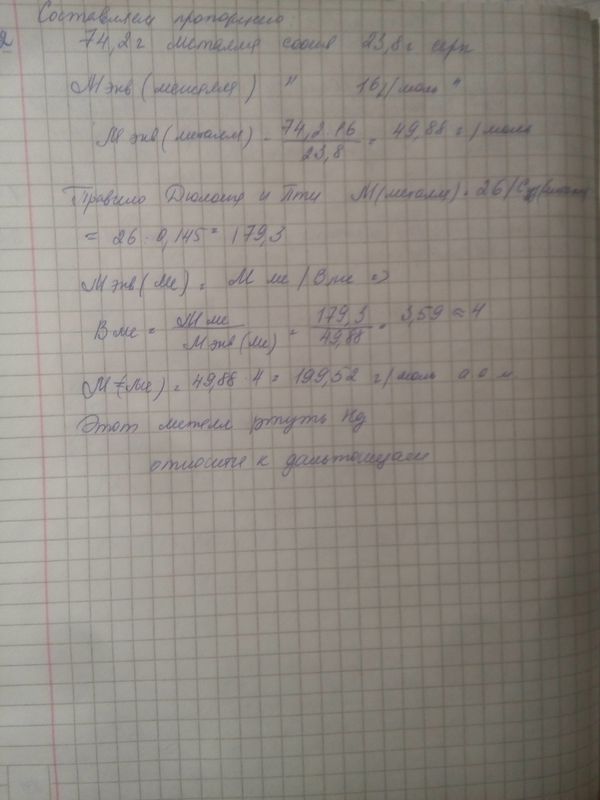 Составляем пропорцию:
2 74,2 г металла соотв 23,8 г серы
М экв (металла) " 16 г/моль "
М экв (металла) = 74,2 · 16 / 23,8 = 49,88 г/моль
Правило Дюлонга и Пти М(металла) = 26/С
= 26 : 0,145 = 179,3
М экв (Ме) = М ме / В ме =>
В ме = М ме / М экв (ме) = 179,3 / 49,88 = 3,59 ≈ 4
М (Ме) = 49,88 · 4 = 199,52 г/моль а.о.м.
Этот металл ртуть Hg
относится к дальтонидам